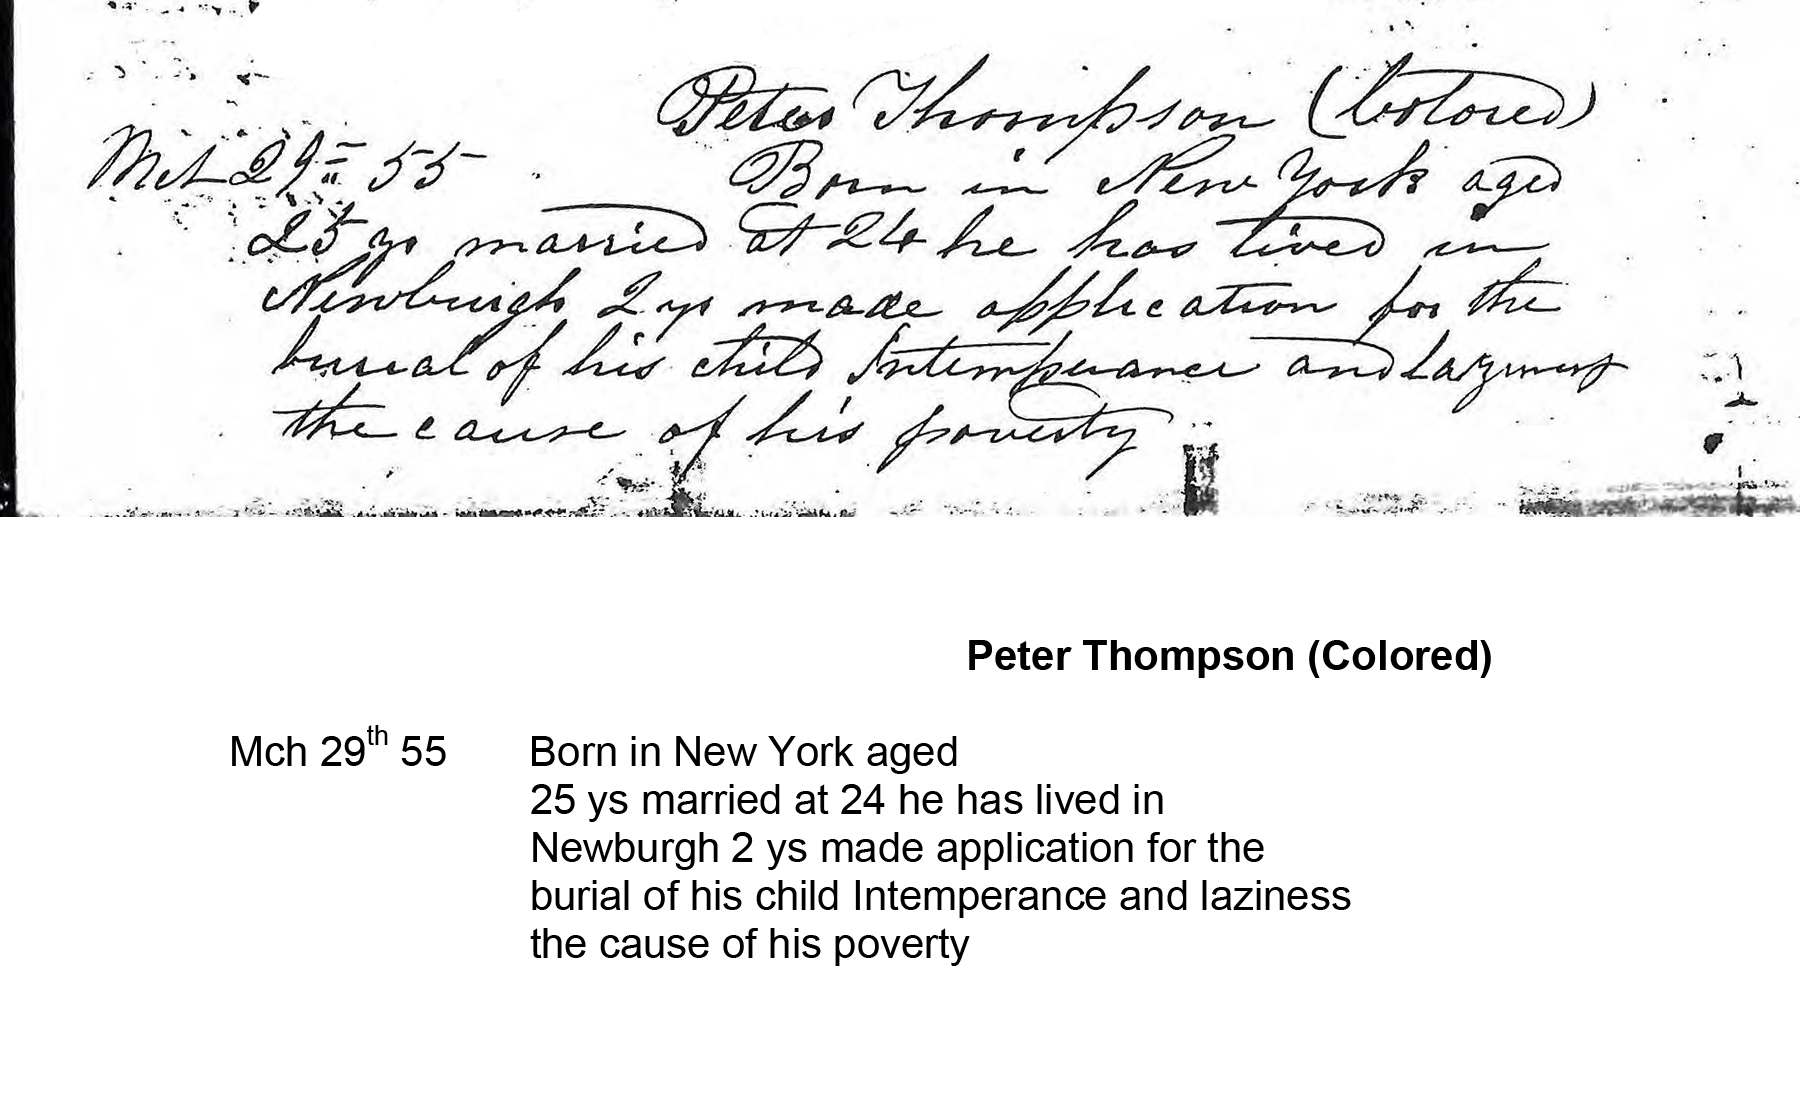 Peter Thompson (Colored)
Mch 29th 55 Born in New York aged
25 ys married at 24 he has lived in
Newburgh 2 ys made application for the
burial of his child Intemperance and Laziness
the cause of his poverty
Peter Thompson (Colored)
Mch 29th 55 Born in New York aged
25 ys married at 24 he has lived in
Newburgh 2 ys made application for the
burial of his child Intemperance and laziness
the cause of his poverty